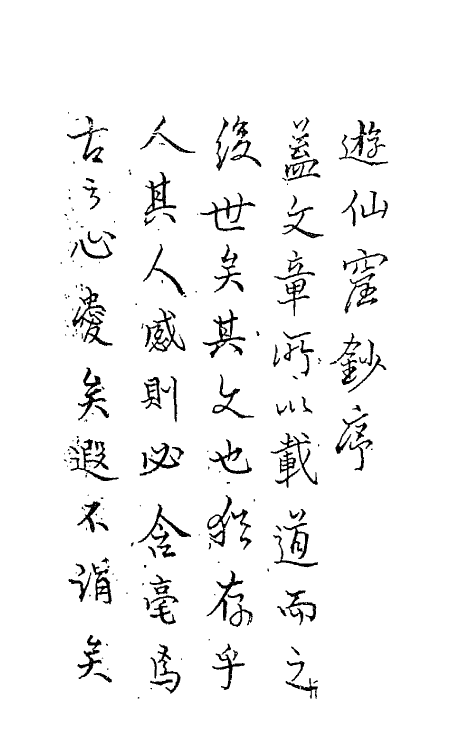 遊仙窟鈔序
蓋文章所以載道而之
後世矣其文也猶存乎
人其人感則必含毫焉
古云心憂矣遐不謂矣